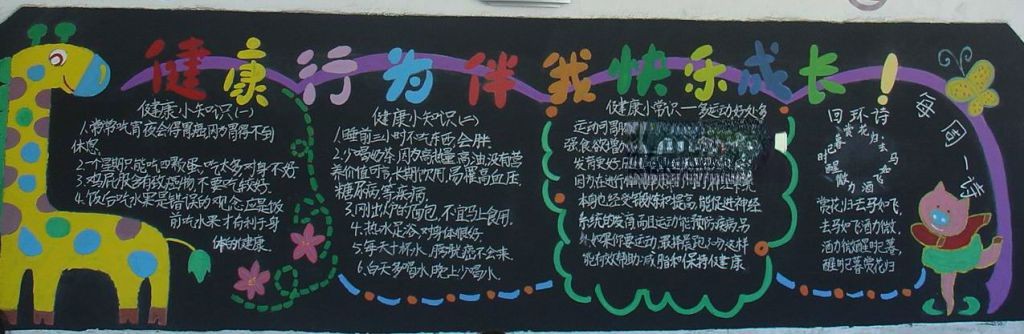 健康行为伴我快乐成长！
健康小知识(一)
1.常常吃宵夜会得胃癌,因为胃得不到
休息.
2.一个星期只能吃四颗蛋,吃太多对身不好
3.鸡屁股有致癌物不要吃较好.
4.饭后吃水果是错误的观念,应是饭
前吃水果才有利于身
体的健康
健康小知识(二)
1.睡前三小时不吃东西会胖.
2.少喝奶茶,因为高热量高油,没有营
养价值可言,长期饮用,易罹高血压,
糖尿病,等疾病.
3.刚出炉的面包,不宜马上食用.
4.热水足浴对身体很好
5.每天十杯水,膀胱癌不会来.
6.白天多喝水,晚上少喝水.
健康小常识——多运动好处多
运动可
强食欲
发育良好
因为在进行
本身也经受锻炼和提高,能促进神经
系统的发育而且运动能预防疾病,另
外如果你要运动,最好
能有效帮助减脂和保持健康
每周一诗
回环诗
赏花归去马如飞
酒力微醒时已暮
赏花归去马如飞,
去马如飞酒力微,
酒力微醒时已暮,
醒时已暮赏花归